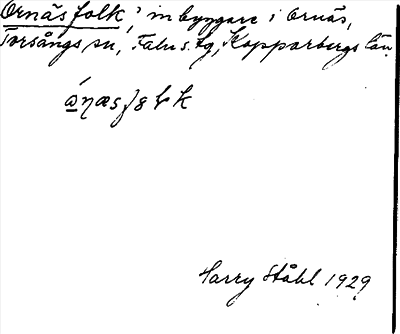 Ornäsfolk, 'inbyggare i Ornäs,
Torsångs sn, Falu s. tg, Kopparbergs län.
Harry Ståhl 1929